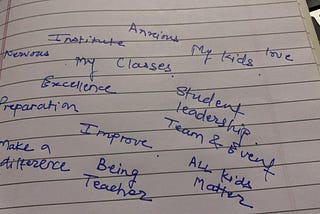 Anxious
Institute My kids love
Nervous My Classes.
Excellence Student
Preparation leadership.
Improve. Team & Event
Make a difference Being Teacher ALL Kids Matter